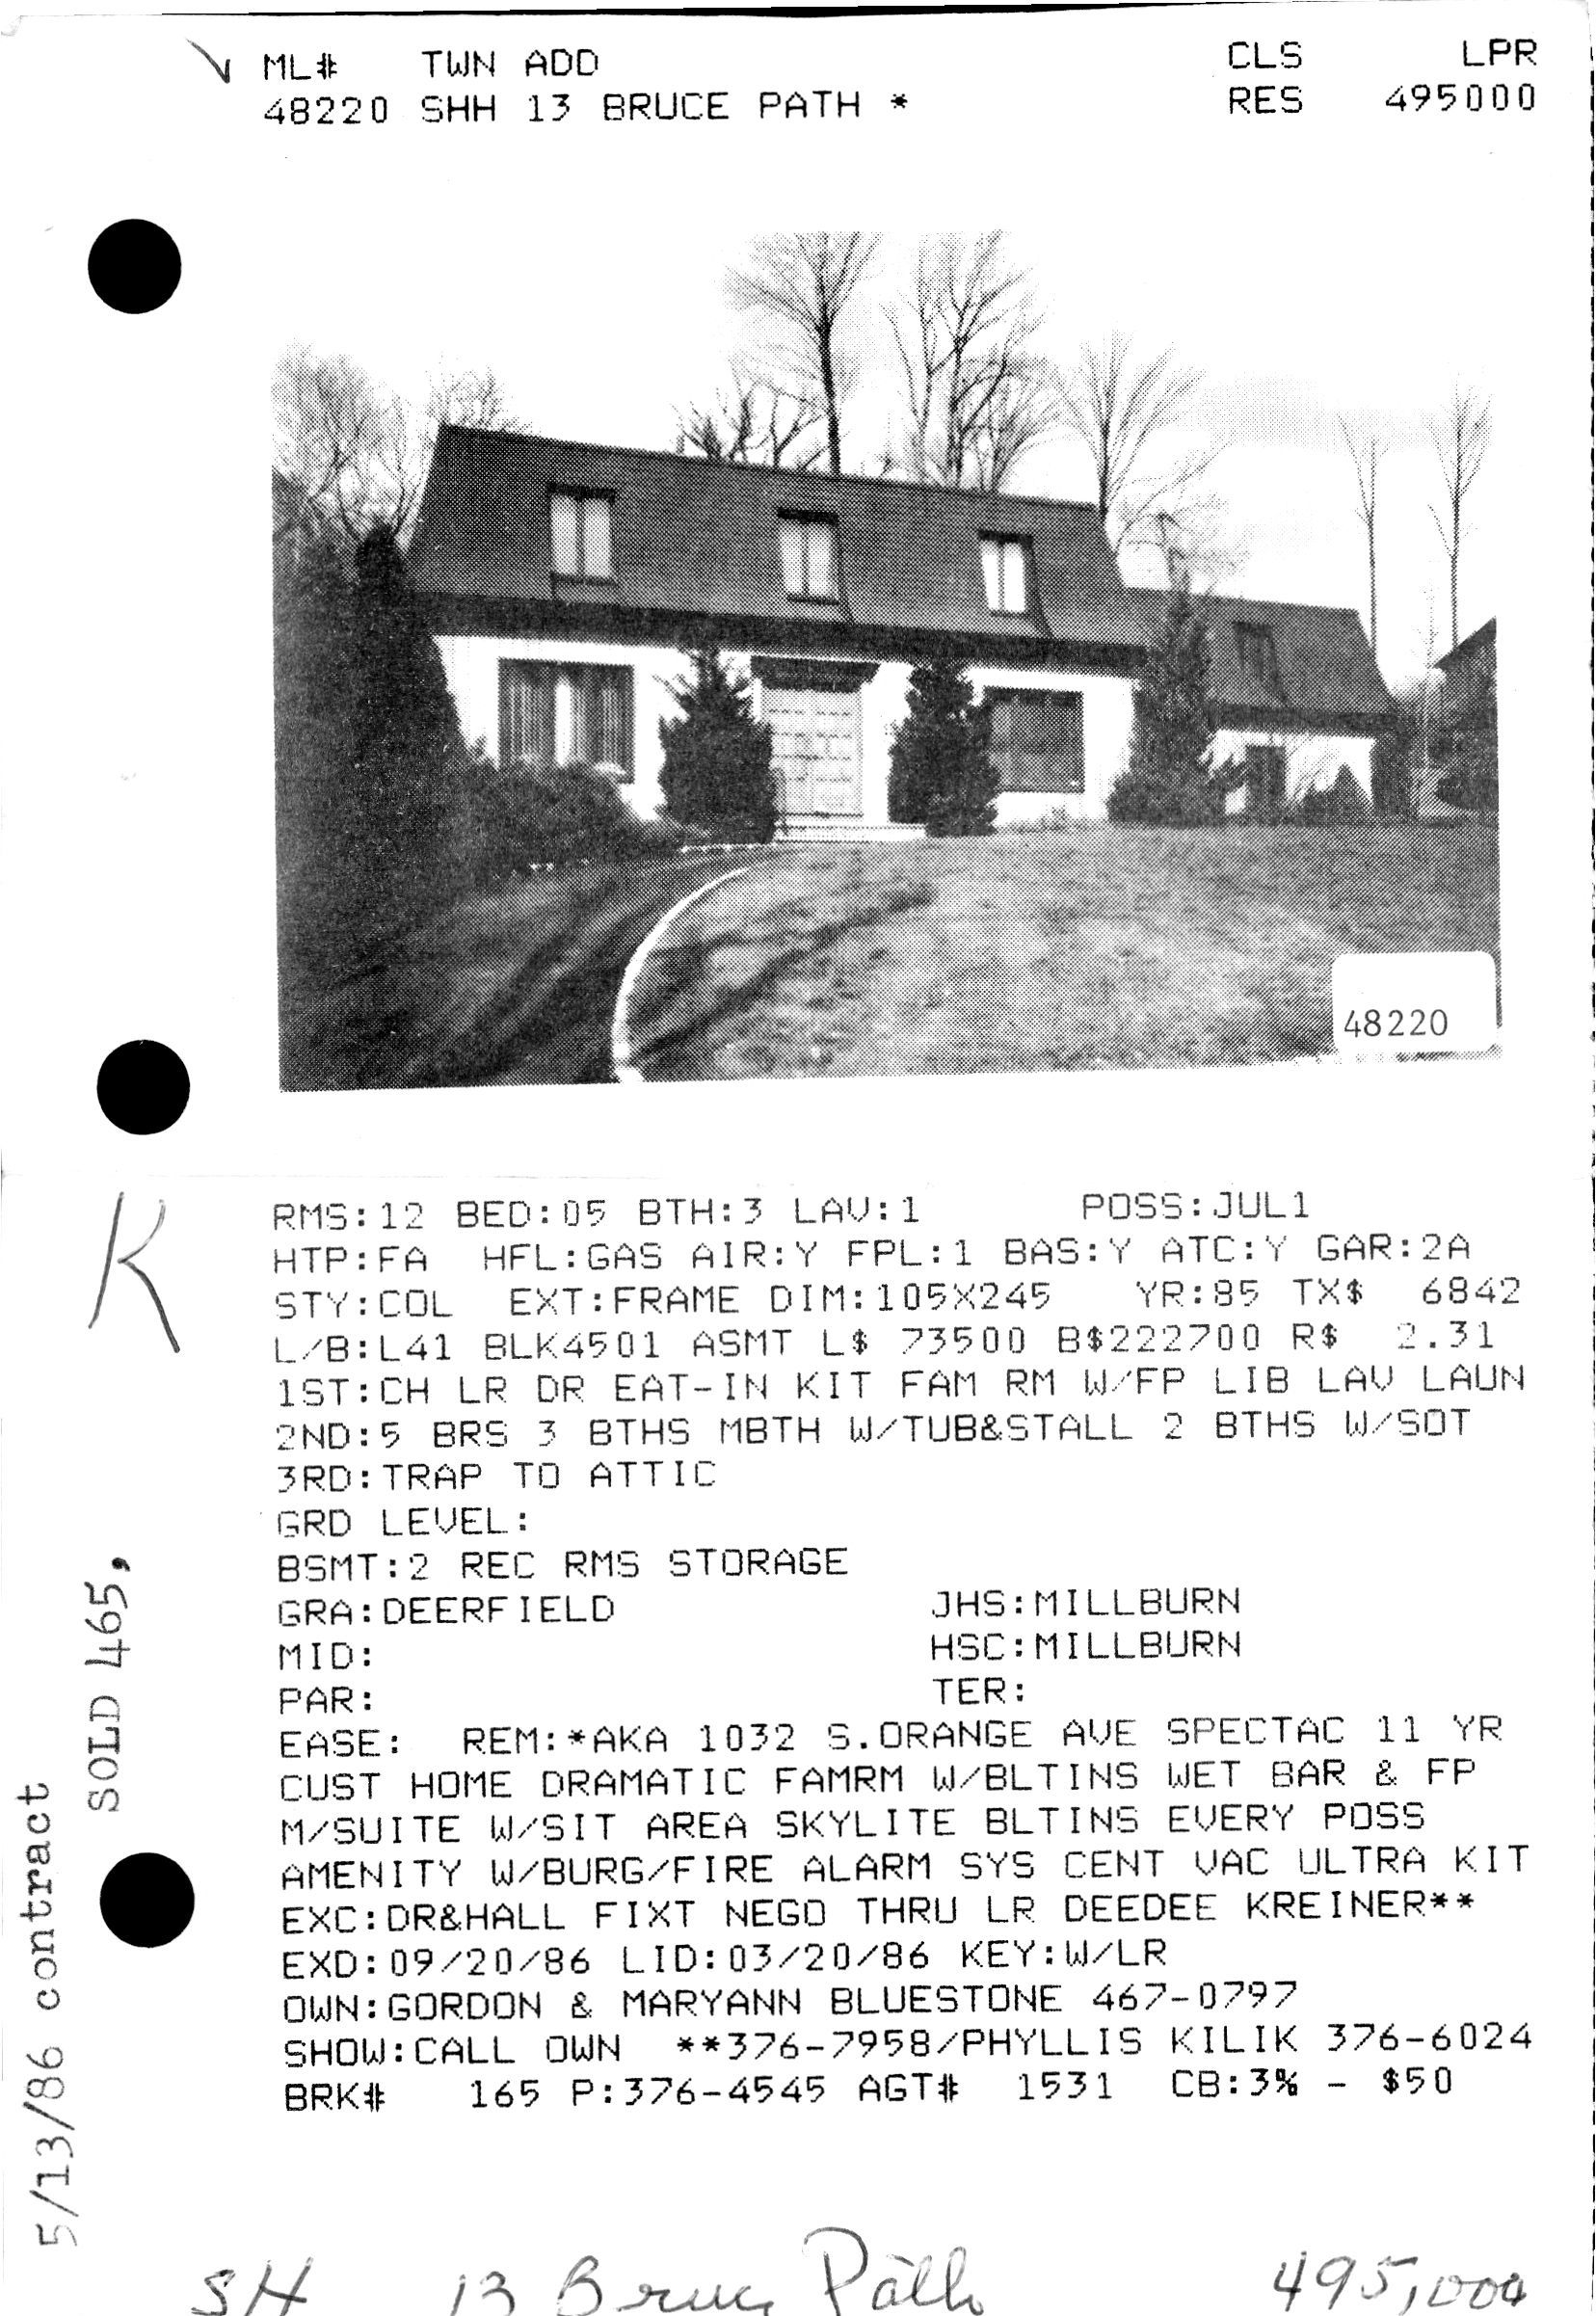 ML# TWN ADD CLS LPR
48220 SHH 13 BRUCE PATH * RES 495000
48220
K
RMS:12 BED:05 BTH:3 LAV:1 POSS:JUL1
HTP:FA HFL:GAS AIR:Y FPL:1 BAS:Y ATC:Y GAR:2A
STY:COL EXT:FRAME DIM:105X245 YR:85 TX$ 6842
L/B:L41 BLK4501 ASMT L$ 73500 B$222700 R$ 2.31
1ST:CH LR DR EAT-IN KIT FAM RM W/FP LIB LAV LAUN
2ND:5 BRS 3 BTHS MBTH W/TUB&STALL 2 BTHS W/SOT
3RD:TRAP TO ATTIC
GRD LEVEL:
BSMT:2 REC RMS STORAGE
GRA:DEERFIELD JHS:MILLBURN
MID: HSC:MILLBURN
PAR: TER:
EASE: REM:*AKA 1032 S.ORANGE AVE SPECTAC 11 YR
CUST HOME DRAMATIC FAMRM W/BLTINS WET BAR & FP
M/SUITE W/SIT AREA SKYLITE BLTINS EVERY POSS
AMENITY W/BURG/FIRE ALARM SYS CENT VAC ULTRA KIT
EXC:DR&HALL FIXT NEGO THRU LR DEEDEE KREINER**
EXD:09/20/86 LID:03/20/86 KEY:W/LR
OWN:GORDON & MARYANN BLUESTONE 467-0797
SHOW:CALL OWN **376-7958/PHYLLIS KILIK 376-6024
BRK# 165 P:376-4545 AGT# 1531 CB:3% - $50
5/13/86 contract
SOLD 465,
SH 13 Bruce Path 495,000